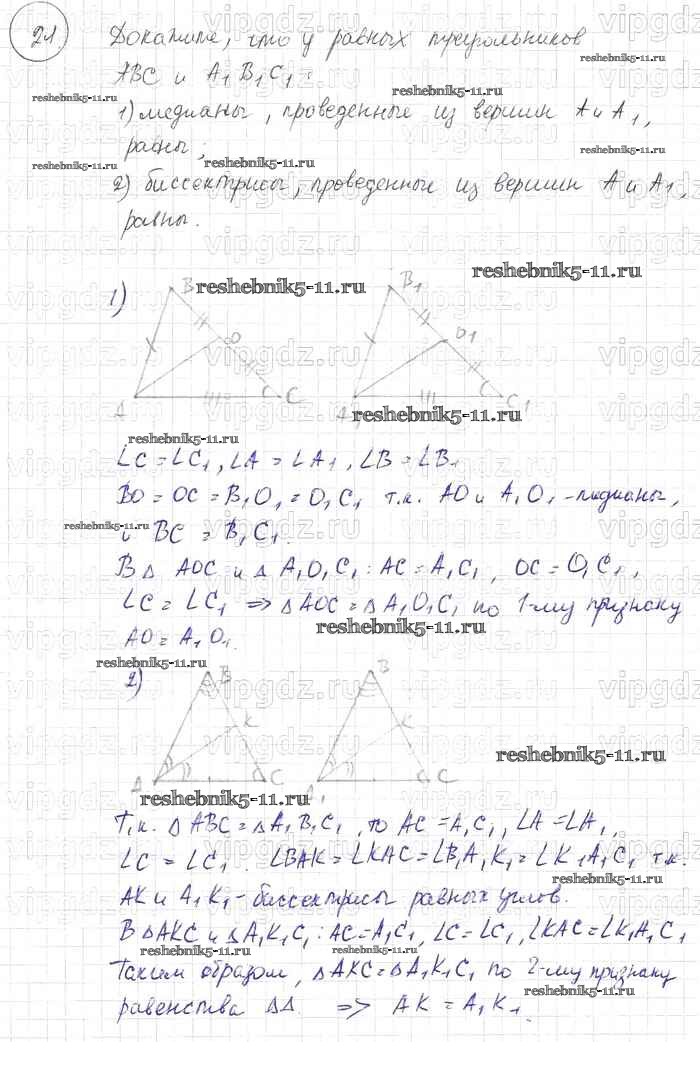 21
Докажите, что у равных треугольников
ABC и A₁B₁C₁:
1) медианы, проведенные из вершин A и A₁,
равны;
2) биссектрисы, проведенные из вершин A и A₁,
равны.
1)
B O A C
B₁ O₁ A₁ C C₁
∠C = ∠C₁, ∠A = ∠A₁, ∠B = ∠B₁
BO = OC = B₁O₁ = O₁C₁ т.к. AO и A₁O₁ - медианы,
и BC = B₁C₁.
В △ AOC и △ A₁O₁C₁: AC = A₁C₁, OC = O₁C₁,
∠C = ∠C₁ ⇒ △AOC = △A₁O₁C₁ по 1-му признаку
AO = A₁O₁.
2)
B K A C
B K A₁ C
Т.к. △ABC = △A₁B₁C₁, то AC = A₁C₁, ∠A = ∠A₁,
∠C = ∠C₁. ∠BAK = ∠KAC = ∠B₁A₁K₁ = ∠K₁A₁C₁ т.к.
AK и A₁K₁ - биссектрисы равных углов.
В △AKC и △A₁K₁C₁: AC = A₁C₁, ∠C = ∠C₁, ∠KAC = ∠K₁A₁C₁
Таким образом, △AKC = △A₁K₁C₁ по 2-му признаку
равенства △△ ⇒ AK = A₁K₁.
reshebnik5-11.ru
vipgdz.ru